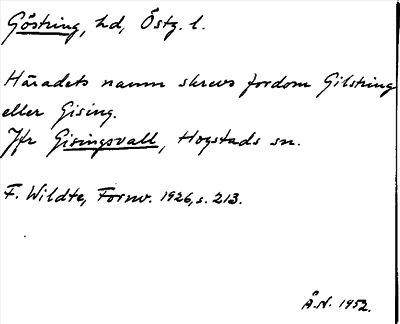 Göstring, hd, Östg. l.
Häradets namn skrevs fordom Gilstring
eller Gising.
Jfr Gisingsvall, Hogstads sn.
F. Wildte, Fornv. 1926, s. 213.
Å.N. 1952.